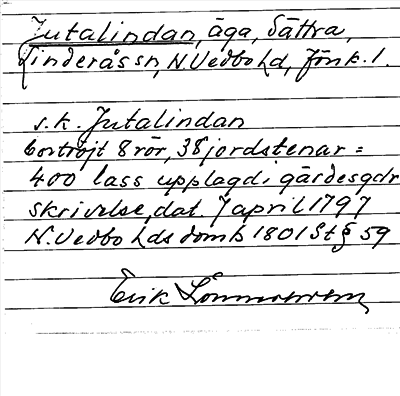 Jutalindan, äga, Sättra,
Linderås sn, N Vedbo hd, Jönk. l.
s.k. Jutalindan
bortröjt 8 rör, 38 jordstenar =
400 lass upplagd i gärdesgdr
skrivelse, dat. 7 april 1797
N. Vedbo hds domb 1801 St § 59
Erik